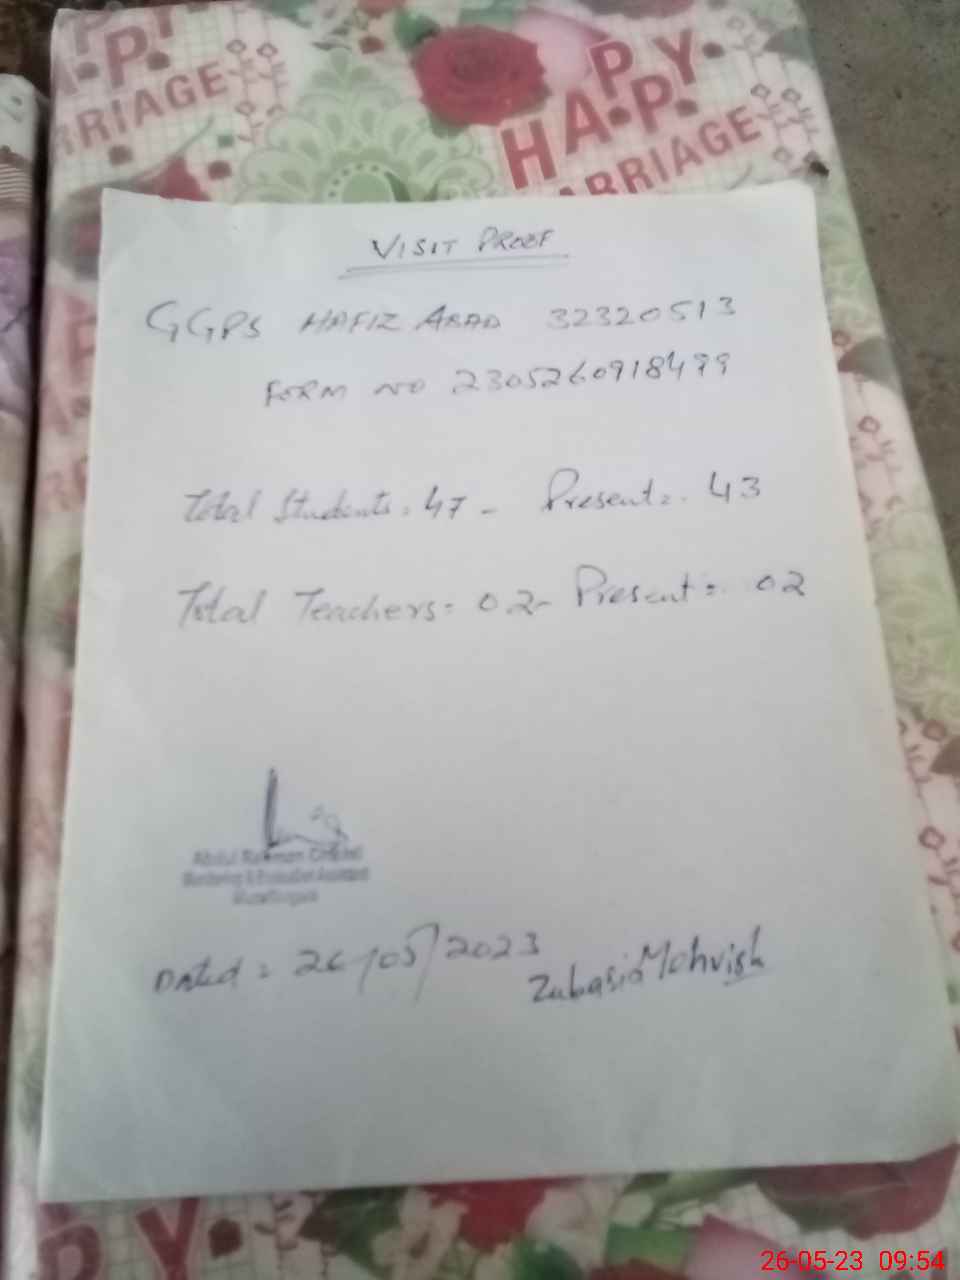 P.P.Y
A.P.
RRIAGE
P.P.Y
HA.P.
ARRIAGE
VISIT PROOF
GGPS HAFIZ ABAD 32320513
FORM NO 2305260918499
Total Students: 47 - Present: 43
Total Teachers: 02 - Present: 02
Abdul Rehman
Monitoring & Evaluation Assistant
Muzaffargarh
Dated: 26/05/2023
Mehvish
PY
26-05-23 09:54